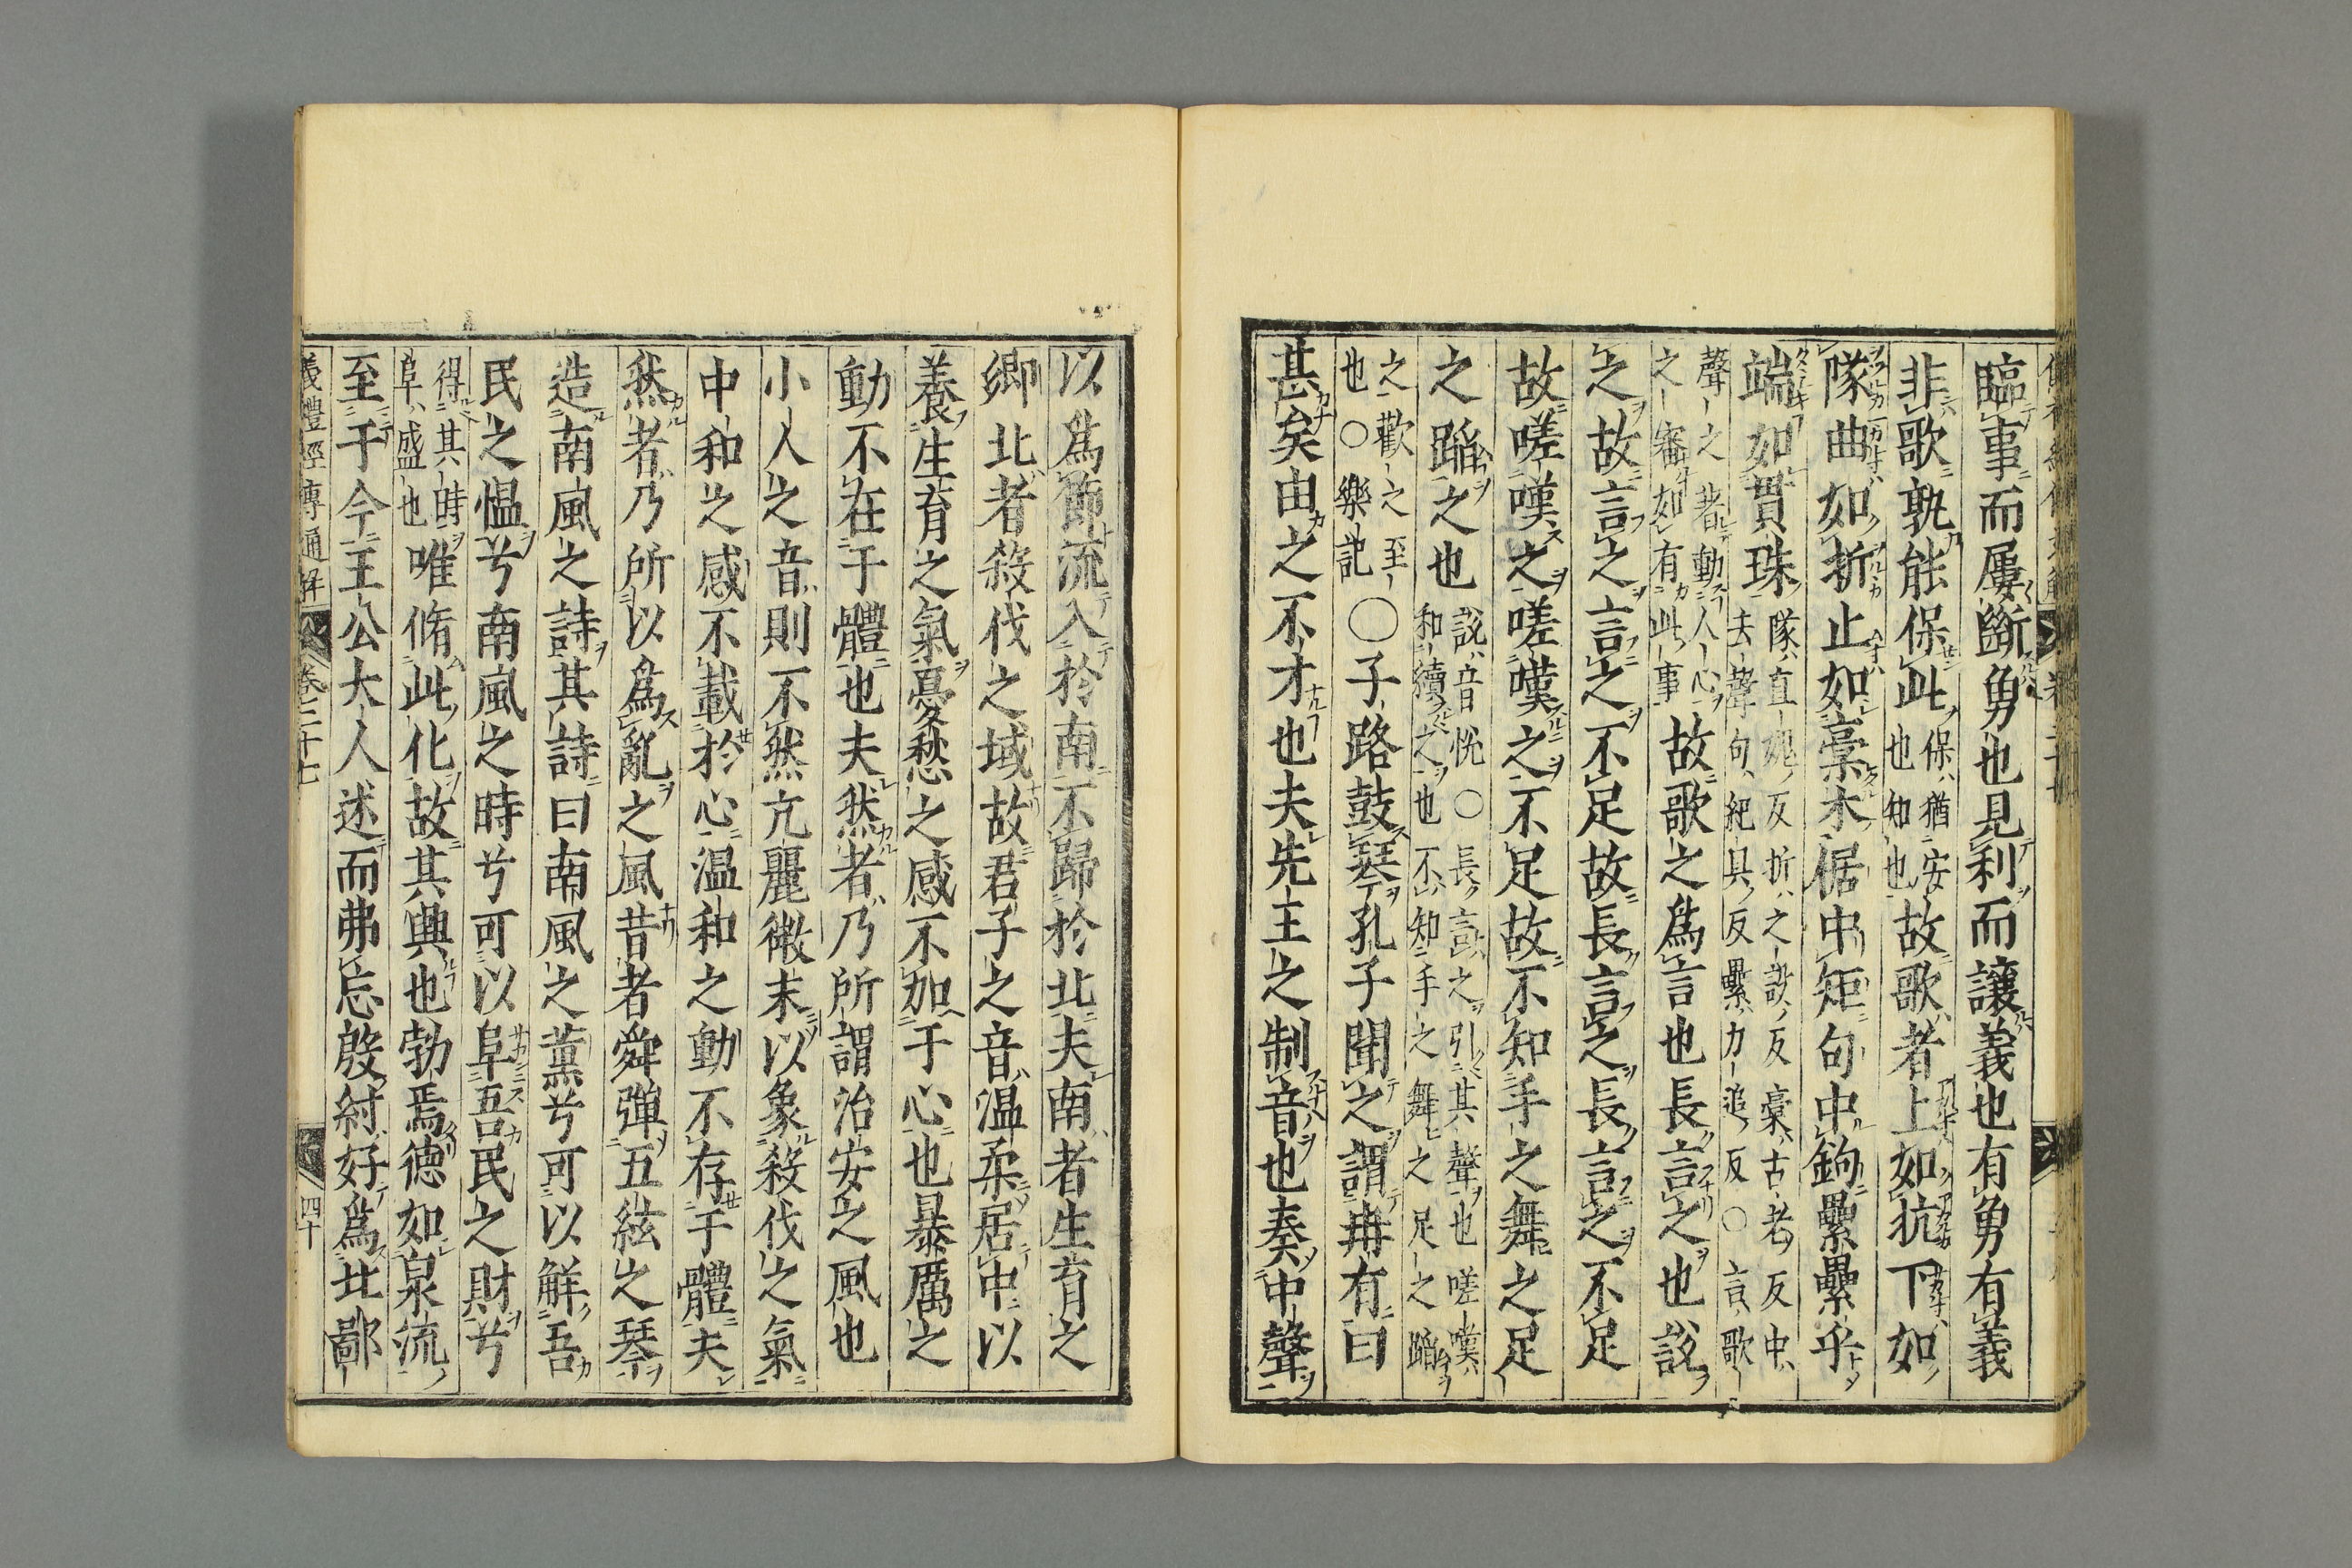 臨事而屢斷勇也見利而讓義也有勇有義
非歌孰能保此保猶安也知也故歌者上如抗下如
隊曲如折止如槀木倨中矩句中鉤纍纍乎
端如貫珠隊直媿反折之設反槀古老反中去聲句紀具反纍力追反○言歌
聲之著動人心之審如有此事故歌之為言也長言之也說
之故言之言之不足故長言之長言之不足
故嗟嘆之嗟嘆之不足故不知手之舞之足
之蹈之也說音悅○長言之引其聲也嗟嘆和續之也不知手之舞之足之蹈
之歡之至也○樂記○子路鼓琴孔子聞之謂冉有曰
甚矣由之不才也夫先王之制音也奏中聲
以為節流入於南不歸於北夫南者生育之
鄉北者殺伐之域故君子之音温柔居中以
養生育之氣憂愁之感不加于心也暴厲之
動不在于體也夫然者乃所謂治安之風也
小人之音則不然亢麗微末以象殺伐之氣
中和之感不載於心温和之動不存于體夫
然者乃所以為亂之風昔者舜彈五絃之琴
造南風之詩其詩曰南風之薰兮可以解吾
民之慍兮南風之時兮可以阜吾民之財兮
得其時阜盛也唯脩此化故其興也勃焉德如泉流
至于今王公大人述而弗忘殷紂好為北鄙
儀禮經傳通解 卷二十七 四十